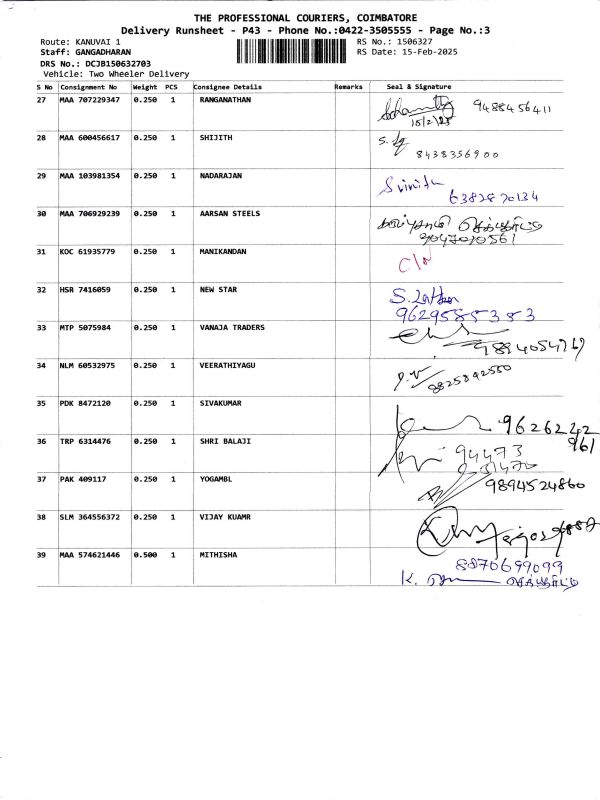 THE PROFESSIONAL COURIERS, COIMBATORE
Delivery Runsheet - P43 - Phone No.:0422-3505555 - Page No.:3
Route: KANUVAI 1 RS No.: 1506327
Staff: GANGADHARAN RS Date: 15-Feb-2025
DRS No.: DCJB150632703
Vehicle: Two Wheeler Delivery
S No Consignment No Weight PCS Consignee Details Remarks Seal & Signature
27 MAA 707229347 0.250 1 RANGANATHAN 9488456411
15/2/25
28 MAA 600456617 0.250 1 SHIJITH
8438356900
29 MAA 103981354 0.250 1 NADARAJAN
6382820134
30 MAA 706929239 0.250 1 AARSAN STEELS
9047010561
31 KOC 61935779 0.250 1 MANIKANDAN
32 HSR 7416059 0.250 1 NEW STAR
9629585353
33 MTP 5075984 0.250 1 VANAJA TRADERS
34 NLM 60532975 0.250 1 VEERATHIYAGU
8825892550
35 PDK 8472120 0.250 1 SIVAKUMAR
9626242
961
36 TRP 6314476 0.250 1 SHRI BALAJI
94473
37 PAK 409117 0.250 1 YOGAMBL 9894524860
38 SLM 364556372 0.250 1 VIJAY KUAMR
39 MAA 574621446 0.500 1 MITHISHA 8870699099
K.